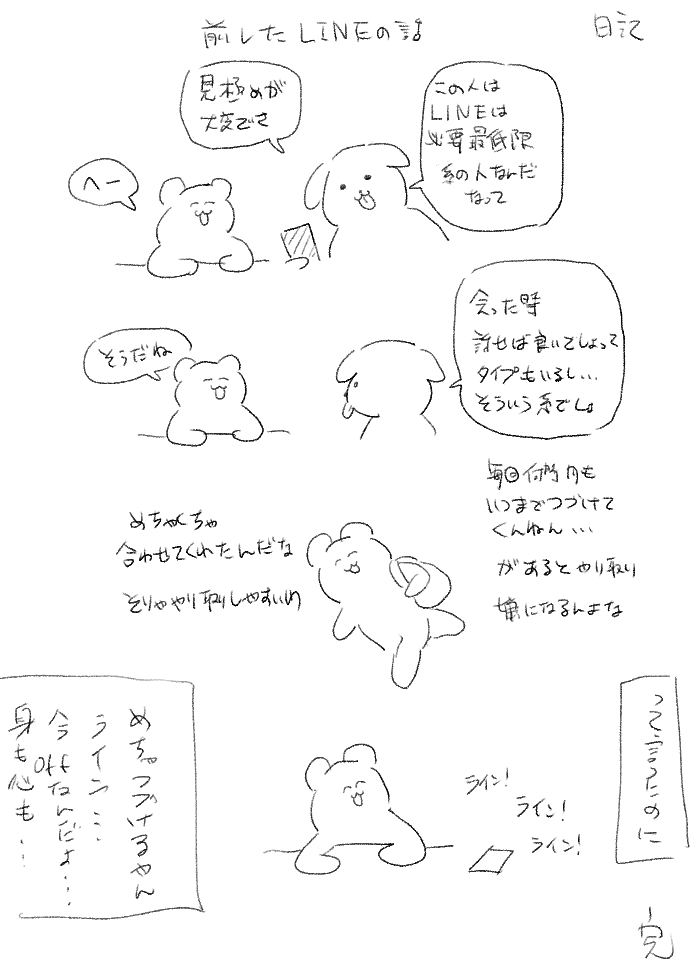 日記
前したLINEの話
この人は
LINEは
必要最低限
系の人なんだ
なって
見極めが
大変でさ
へー
会った時
話せば良いでしょって
タイプもいるし…
そういう系でしょ
そうだね
毎回何門月も
いつまでつづけて
くんねん…
があるとやり取り
嫌になるんよな
めちゃくちゃ
合わせてくれたんだな
そりゃやり取りしやすいわ
って言ったのに
ライン!
ライン!
ライン!
めちゃつづけるやん
ライン…
今offなんだよ…
身も心も…
完